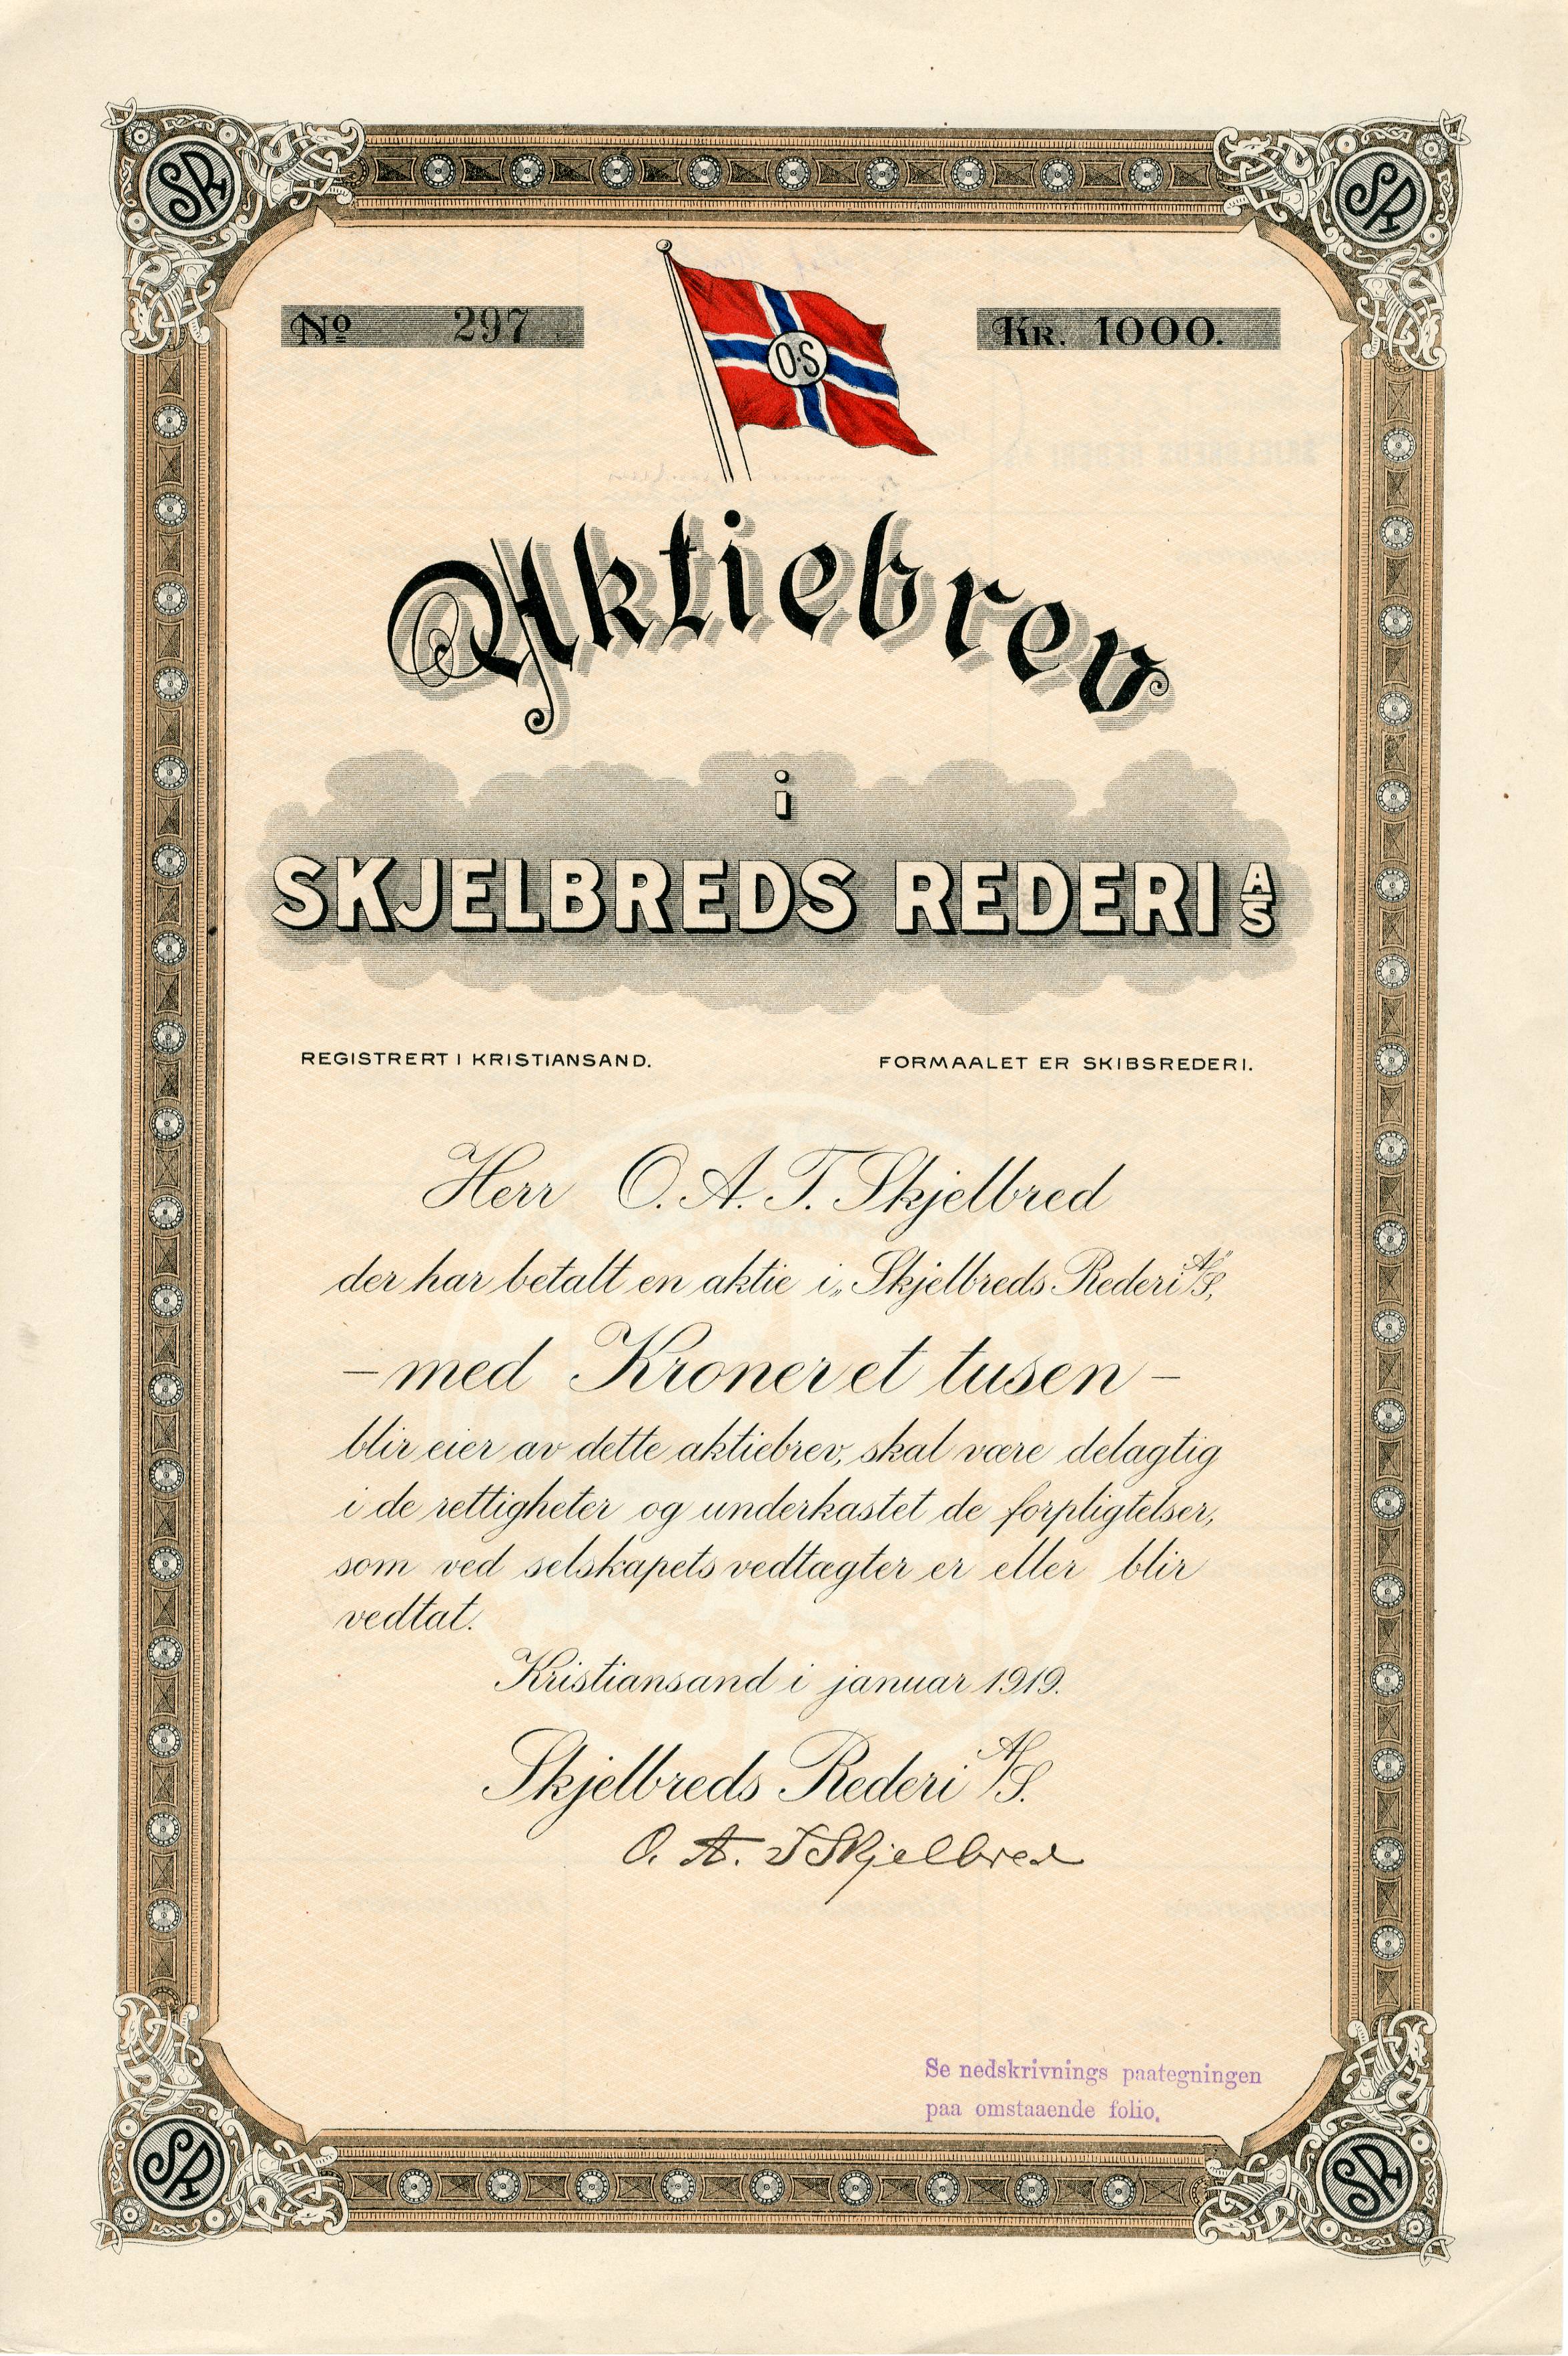 SR
SR
No 297
O·S
KR. 1000.
Aktiebrev
i
SKJELBREDS REDERI A/S
REGISTRERT I KRISTIANSAND.
FORMAALET ER SKIBSREDERI.
Herr O. A. T. Skjelbred
der har betalt en aktie i „Skjelbreds Rederi A/S",
– med Kroner et tusen –
blir eier av dette aktiebrev, skal være delagtig
i de rettigheter og underkastet de forpligtelser,
som ved selskapets vedtægter er eller blir
vedtat.
Kristiansand i januar 1919.
Skjelbreds Rederi A/S.
O. A. T Skjelbred
Se nedskrivnings paategningen
paa omstaaende folio.
SR
SR